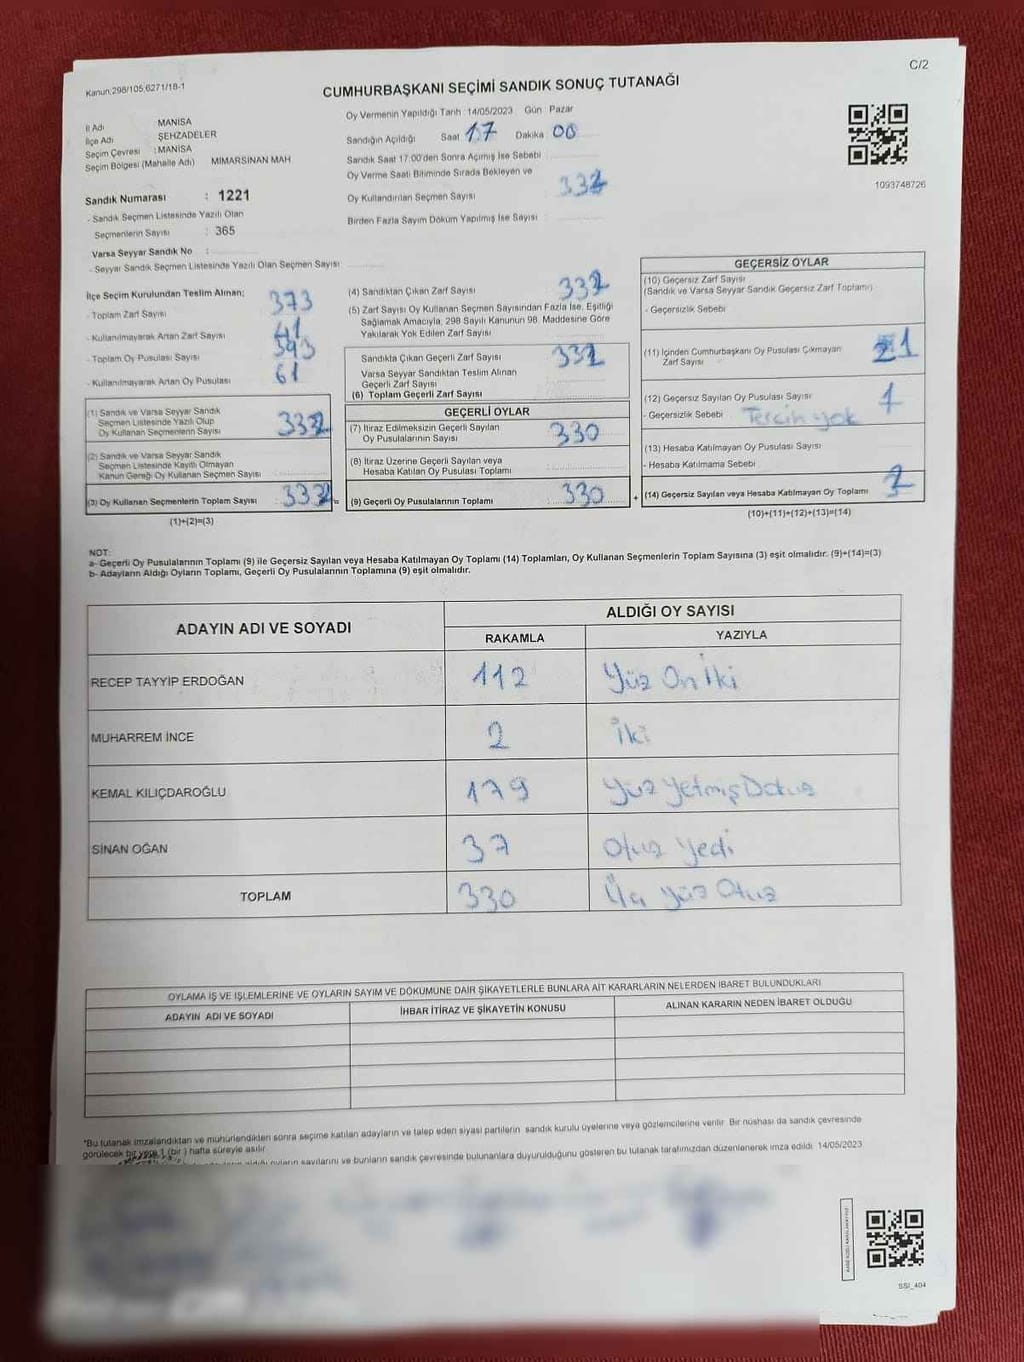 C/2
Kanun:298/105,6271/18-1
CUMHURBAŞKANI SEÇİMİ SANDIK SONUÇ TUTANAĞI
İl Adı MANİSA
İlçe Adı ŞEHZADELER
Seçim Çevresi : MANİSA
Seçim Bölgesi (Mahalle Adı) MİMARSİNAN MAH
Sandık Numarası : 1221
- Sandık Seçmen Listesinde Yazılı Olan
Seçmenlerin Sayısı : 365
Varsa Seyyar Sandık No :
- Seyyar Sandık Seçmen Listesinde Yazılı Olan Seçmen Sayısı
Oy Vermenin Yapıldığı Tarih :14/05/2023 Gün : Pazar
Sandığın Açıldığı Saat 17 Dakika 00
Sandık Saat 17:00'den Sonra Açılmış İse Sebebi
Oy Verme Saati Bitiminde Sırada Bekleyen ve
Oy Kullandırılan Seçmen Sayısı 332
Birden Fazla Sayım Döküm Yapılmış İse Sayısı
1093748726
İlçe Seçim Kurulundan Teslim Alınan;
- Toplam Zarf Sayısı 373
- Kullanılmayarak Artan Zarf Sayısı 41
- Toplam Oy Pusulası Sayısı 393
- Kullanılmayarak Artan Oy Pusulası 61
(1) Sandık ve Varsa Seyyar Sandık
Seçmen Listesinde Yazılı Olup
Oy Kullanan Seçmenlerin Sayısı 332
(2) Sandık ve Varsa Seyyar Sandık
Seçmen Listesinde Kayıtlı Olmayan
Kanun Gereği Oy Kullanan Seçmen Sayısı
(3) Oy Kullanan Seçmenlerin Toplam Sayısı 332 =
(1)+(2)=(3)
(4) Sandıktan Çıkan Zarf Sayısı 332
(5) Zarf Sayısı Oy Kullanan Seçmen Sayısından Fazla İse, Eşitliği
Sağlamak Amacıyla, 298 Sayılı Kanunun 98. Maddesine Göre
Yakılarak Yok Edilen Zarf Sayısı
Sandıkta Çıkan Geçerli Zarf Sayısı 332
Varsa Seyyar Sandıktan Teslim Alınan
Geçerli Zarf Sayısı
(6) Toplam Geçerli Zarf Sayısı
GEÇERLİ OYLAR
(7) İtiraz Edilmeksizin Geçerli Sayılan
Oy Pusulalarının Sayısı 330
(8) İtiraz Üzerine Geçerli Sayılan veya
Hesaba Katılan Oy Pusulası Toplamı
(9) Geçerli Oy Pusulalarının Toplamı 330 +
GEÇERSİZ OYLAR
(10) Geçersiz Zarf Sayısı
(Sandık ve Varsa Seyyar Sandık Geçersiz Zarf Toplamı)
- Geçersizlik Sebebi
(11) İçinden Cumhurbaşkanı Oy Pusulası Çıkmayan
Zarf Sayısı 1
(12) Geçersiz Sayılan Oy Pusulası Sayısı 1
- Geçersizlik Sebebi Tercih yok
(13) Hesaba Katılmayan Oy Pusulası Sayısı
- Hesaba Katılmama Sebebi
(14) Geçersiz Sayılan veya Hesaba Katılmayan Oy Toplamı 2
(10)+(11)+(12)+(13)=(14)
NOT:
a- Geçerli Oy Pusulalarının Toplamı (9) ile Geçersiz Sayılan veya Hesaba Katılmayan Oy Toplamı (14) Toplamları, Oy Kullanan Seçmenlerin Toplam Sayısına (3) eşit olmalıdır. (9)+(14)=(3)
b- Adayların Aldığı Oyların Toplamı, Geçerli Oy Pusulalarının Toplamına (9) eşit olmalıdır.
ADAYIN ADI VE SOYADI ALDIĞI OY SAYISI
RAKAMLA YAZIYLA
RECEP TAYYİP ERDOĞAN 112 Yüz On İki
MUHARREM İNCE 2 İki
KEMAL KILIÇDAROĞLU 179 Yüz Yetmiş Dokuz
SİNAN OĞAN 37 Otuz Yedi
TOPLAM 330 Üç yüz Otuz
OYLAMA İŞ VE İŞLEMLERİNE VE OYLARIN SAYIM VE DÖKÜMÜNE DAİR ŞİKAYETLERLE BUNLARA AİT KARARLARIN NELERDEN İBARET BULUNDUKLARI
ADAYIN ADI VE SOYADI İHBAR İTİRAZ VE ŞİKAYETİN KONUSU ALINAN KARARIN NEDEN İBARET OLDUĞU
*Bu tutanak imzalandıktan ve mühürlendikten sonra seçime katılan adayların ve talep eden siyasi partilerin sandık kurulu üyelerine veya gözlemcilerine verilir. Bir nüshası da sandık çevresinde
görülecek bir yere 1 (bir) hafta süreyle asılır.
oyların sayılarını ve bunların sandık çevresinde bulunanlara duyurulduğunu gösteren bu tutanak tarafımızdan düzenlenerek imza edildi. 14/05/2023
SSI_404